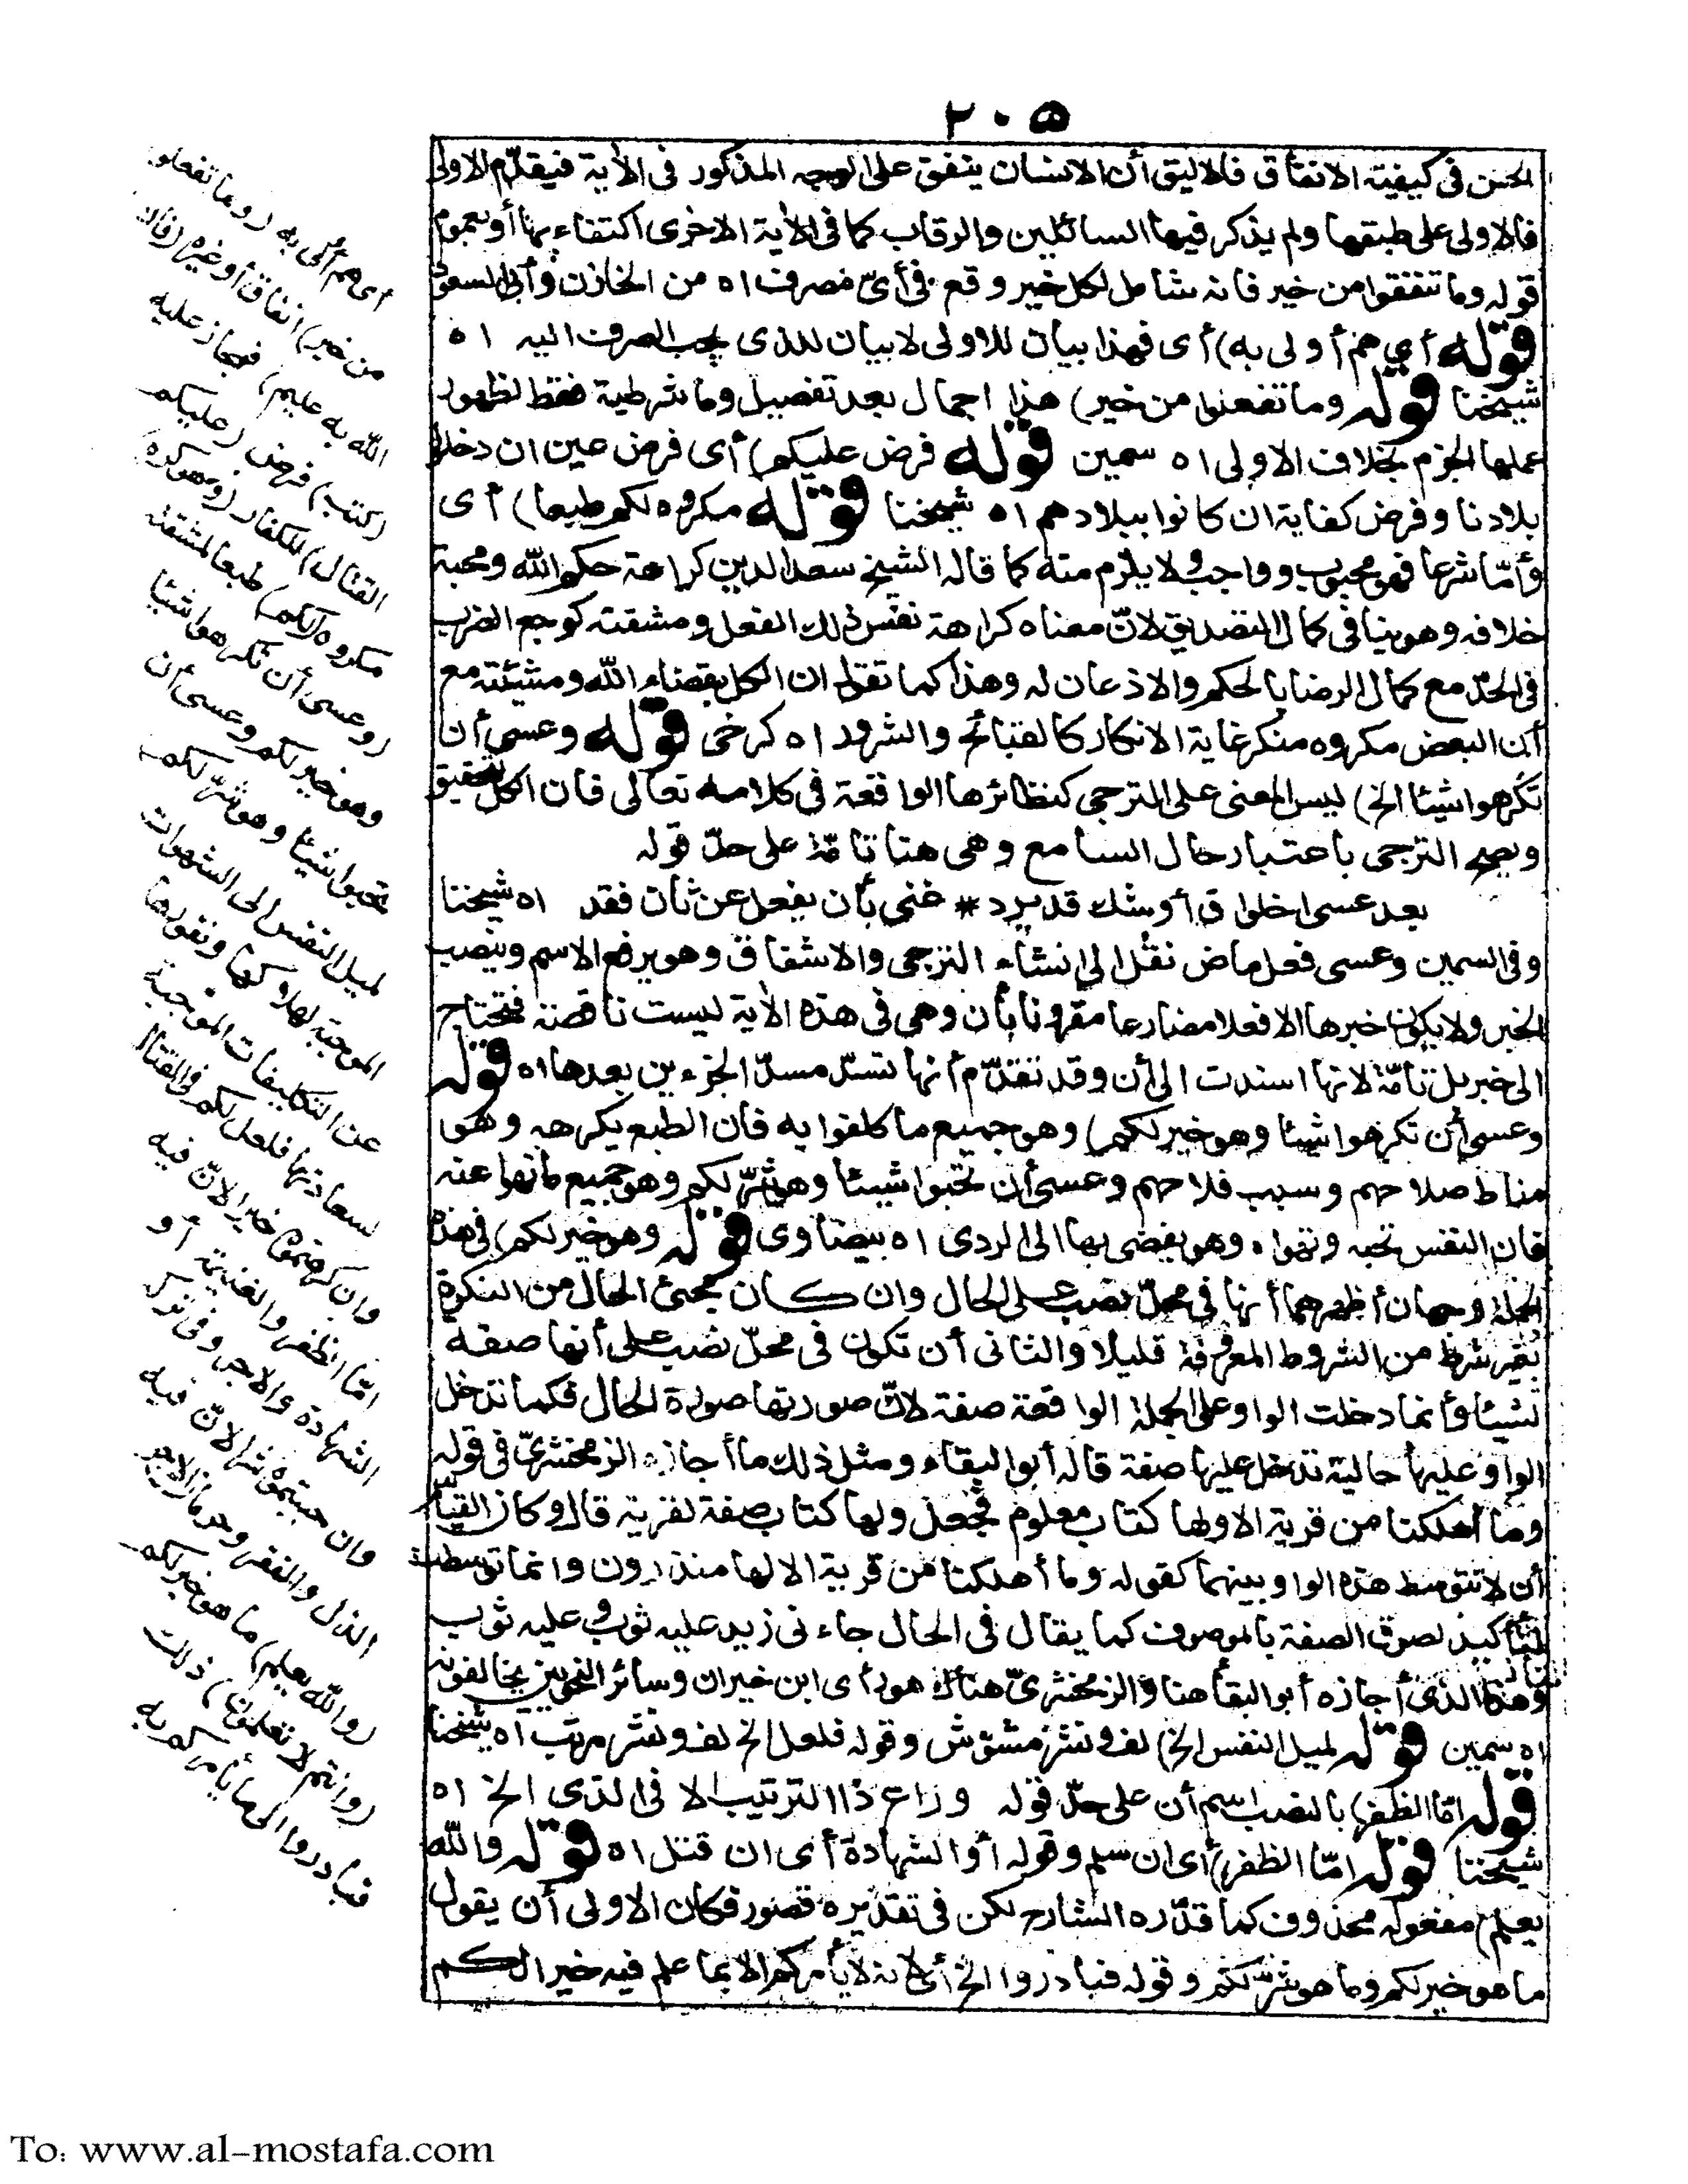 ٢٠٥
الحسن فى كيفية الانفاق فالاليق أن الانسان ينفق على الوجه المذكور فى الآية فيقدّم الاولى
فالاولى على طبقها ولم يذكر فيها السائلين والرقاب كما فى الآية الاخرى اكتفاء بها أو بعموم
قوله وما تنفقوا من خير فانه شامل لكل خير وقع فى أىّ مصرف اه من الخازن وأبى السعود
قوله أى هم أولى به) أى فهذا بيان للاولى لا بيان للذى يجب الصرف اليه اه
شيخنا قوله وما تفعلوا من خير) هذا اجمال بعد تفصيل وما شرطية فقط لظهور
عملها الجزم بخلاف الاولى اه سمين قوله فرض عليكم) أى فرض عين ان دخلوا
بلادنا وفرض كفاية ان كانوا ببلادهم اه شيخنا قوله مكروه لكم طبعا) أى
وأمّا شرعا فهو محبوب وواجب ولا يلزم منه كما قاله الشيخ سعد الدين كراهة حكم الله ومحبة
خلافه وهو ينافى كمال التصديق لانّ معناه كراهة نفس ذلك الفعل ومشقته كوجع الضرب
فى الحدّ مع كمال الرضا بالحكم والاذعان له وهذا كما تقول ان الكل بقضاء الله ومشيئته مع
أن البعض مكروه منكر غاية الانكار كالقبائح والشرور اه كرخى قوله وعسى أن
تكرهوا شيئا الخ) ليس المعنى على الترجى كنظائرها الواقعة فى كلامه تعالى فان الكل للتحقيق
ويصح الترجى باعتبار حال السامع وهى هنا تامّة على حدّ قوله
بعد عسى اخلولق أوشك قد يرد * غنى بأن يفعل عن ثان فقد اه شيخنا
وفى السمين وعسى فعل ماض نقل الى انشاء الترجى والاشفاق وهو يرفع الاسم وينصب
الخبر ولا يكون خبرها الا فعلا مضارعا مقرونا بأن وهى فى هذه الآية ليست ناقصة فتحتاج
الى خبر بل تامّة لانها اسندت الى أن وقد تقدّم أنها تسدّ مسدّ الجزءين بعدها اه قوله
وعسى أن تكرهوا شيئا وهو خير لكم) وهو جميع ما كلفوا به فان الطبع يكرهه وهو
مناط صلاحهم وسبب فلاحهم وعسى أن تحبوا شيئا وهو شرّ لكم وهو جميع ما نهوا عنه
فان النفس تحبه وتهواه وهو يفضى بها الى الردى اه بيضاوى قوله وهو خير لكم) فى هذه
الجملة وجهان أظهرهما أنها فى محلّ نصب على الحال وان كان مجىء الحال من النكرة
بغير شرط من الشروط المعروفة قليلا والثانى أن تكون فى محلّ نصب على أنها صفة
لشيئا وانما دخلت الواو على الجملة الواقعة صفة لانّ صورتها صورة الحال فكما تدخل
الواو عليها حالية تدخل عليها صفة قاله أبو البقاء ومثل ذلك ما أجازه الزمخشرىّ فى قوله
وما أهلكنا من قرية الا ولها كتاب معلوم فجعل ولها كتاب صفة لقرية قال وكان القياس
أن لا تتوسط هذه الواو بينهما كقوله وما أهلكنا من قرية الا لها منذرون وانما توسطت
لتأكيد لصوق الصفة بالموصوف كما يقال فى الحال جاءنى زيد عليه ثوب وعليه ثوب
وهذا الذى أجازه أبو البقاء هنا والزمخشرىّ هناك هو رأى ابن خيران وسائر النحويين يخالفونه
اه سمين قوله لميل النفس الخ) لف ونشر مشوّش وقوله فلعل الخ لف ونشر مرتب اه شيخنا
قوله امّا الظفر) بالنصب اسم أن على حدّ قوله وراع ذا الترتيب الا فى الذى الخ اه
شيخنا قوله امّا الظفر) أى ان سلم وقوله أو الشهادة أى ان قتل اه قوله والله
يعلم) مفعوله محذوف كما قدّره الشارح لكن فى تقديره قصور فكان الاولى أن يقول
ما هو خير لكم وما هو شرّ لكم وقوله فبادروا الخ أى لانه لا يأمركم الا بما علم فيه خيرا لكم
أى هم أولى به (وما تفعلوا
من خير) انفاق أو غيره (فان
الله به عليم) فمجاز عليه
(كتب) فرض (عليكم
القتال) للكفار (وهو كره)
مكروه (لكم) طبعا لمشقته
(وعسى أن تكرهوا شيئا
وهو خير لكم وعسى أن
تحبوا شيئا وهو شرّ لكم)
لميل النفس الى الشهوات
الموجبة لهلاكها ونفورها
عن التكليفات الموجبة
لسعادتها فلعل لكم فى القتال
وان كرهتموه خيرا لانّ فيه
امّا الظفر والغنيمة أو
الشهادة والاجر وفى تركه
وان حببتموه شرّا لانّ فيه
الذل والفقر وحرمان الاجر
(والله يعلم) ما هو خير لكم
(وانتم لا تعلمون) ذلك
فبادروا الى ما يأمركم به
To: www.al-mostafa.com